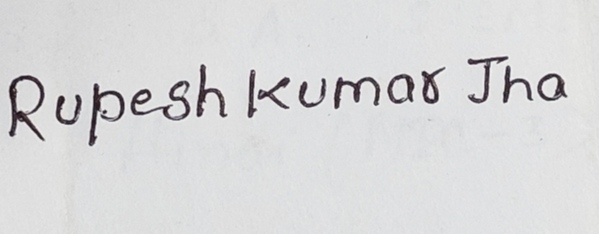 Rupesh Kumar Jha